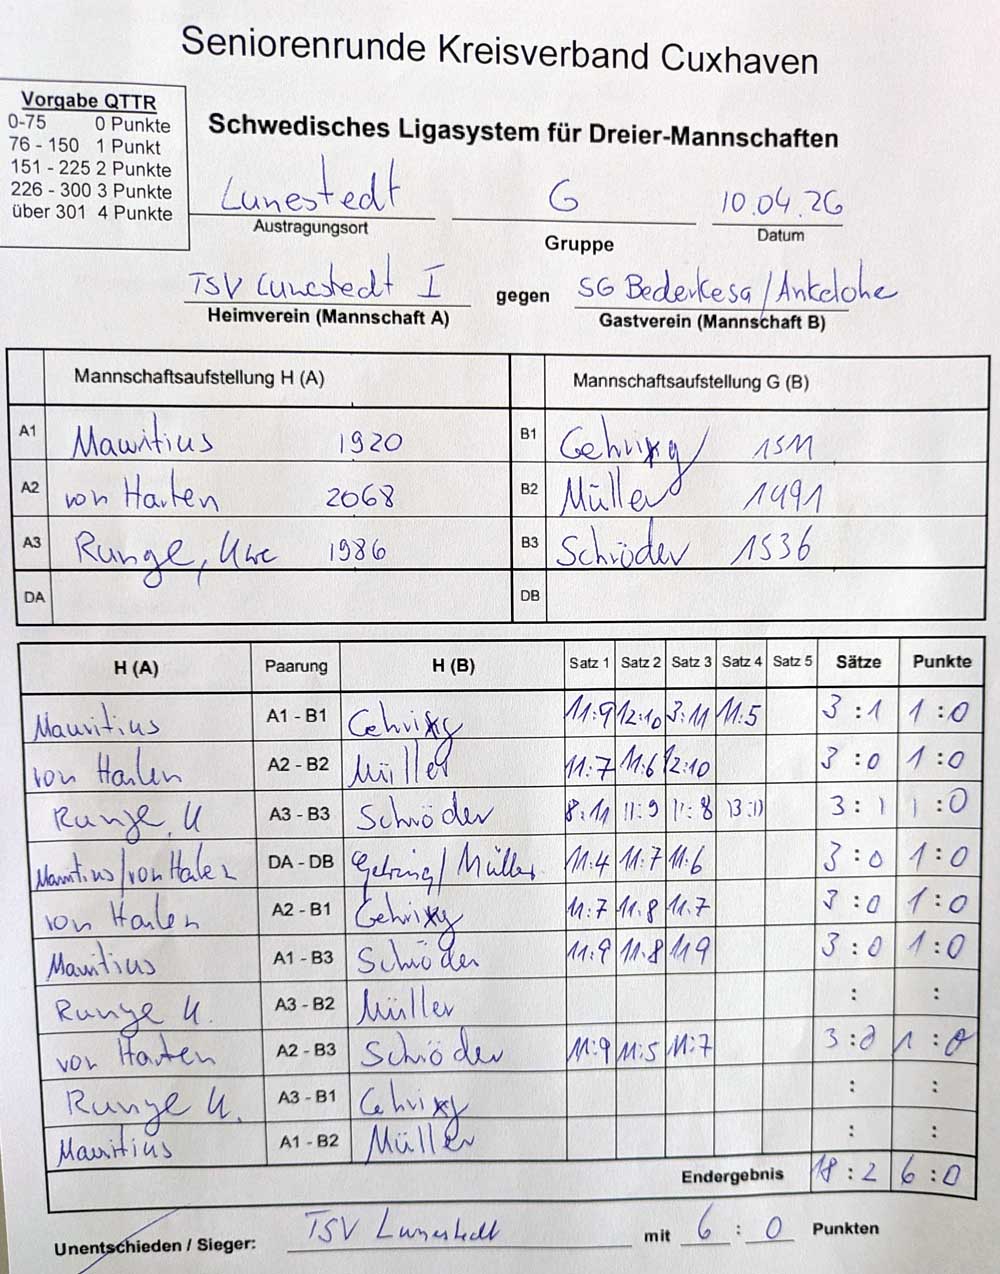 Seniorenrunde Kreisverband Cuxhaven
Vorgabe QTTR
0-75 0 Punkte
76 - 150 1 Punkt
151 - 225 2 Punkte
226 - 300 3 Punkte
über 301 4 Punkte
Schwedisches Ligasystem für Dreier-Mannschaften
Lunestedt G 10.04.26
Austragungsort Gruppe Datum
TSV Lunestedt I gegen SG Bederkesa/Ankelohe
Heimverein (Mannschaft A) Gastverein (Mannschaft B)
Mannschaftsaufstellung H (A) Mannschaftsaufstellung G (B)
A1 Mauritius 1920 B1 Gehring 1511
A2 von Harten 2068 B2 Müller 1491
A3 Runge, Uwe 1986 B3 Schröder 1536
DA DB
H (A) Paarung H (B) Satz 1 Satz 2 Satz 3 Satz 4 Satz 5 Sätze Punkte
Mauritius A1 - B1 Gehring 11:9 12:10 3:11 11:5 3 : 1 1 : 0
von Harten A2 - B2 Müller 11:7 11:6 12:10 3 : 0 1 : 0
Runge, U A3 - B3 Schröder 8:11 11:9 11:8 13:11 3 : 1 1 : 0
Mauritius/von Harten DA - DB Gehring/Müller 11:4 11:7 11:6 3 : 0 1 : 0
von Harten A2 - B1 Gehring 11:7 11:8 11:7 3 : 0 1 : 0
Mauritius A1 - B3 Schröder 11:9 11:8 11:9 3 : 0 1 : 0
Runge U. A3 - B2 Müller : :
von Harten A2 - B3 Schröder 11:9 11:5 11:7 3 : 0 1 : 0
Runge U. A3 - B1 Gehring : :
Mauritius A1 - B2 Müller : :
Endergebnis 18 : 2 6 : 0
Unentschieden / Sieger: TSV Lunestedt mit 6 : 0 Punkten